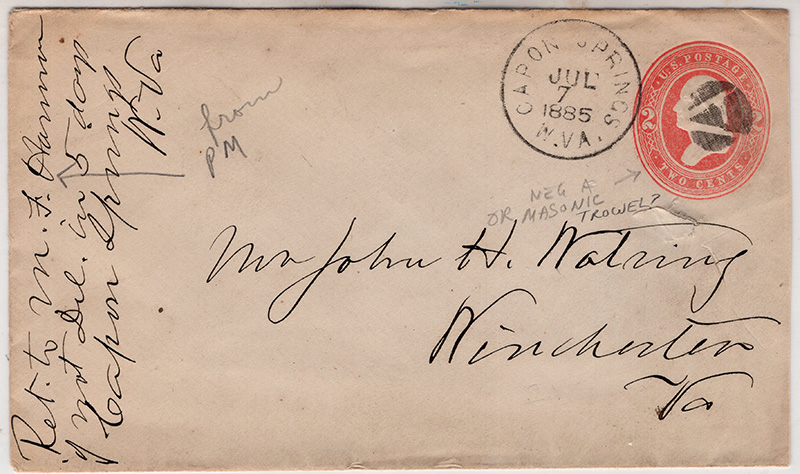 Ret. to M. F. Hannum
if not Del. in 5 days
Capon Springs
W. Va
from
PM
CAPON SPRINGS
JUL
7
1885
W. VA.
U.S. POSTAGE
2
TWO CENTS
NEG A
OR MASONIC
TROWEL?
Mr John H. Watring
Winchester
Va